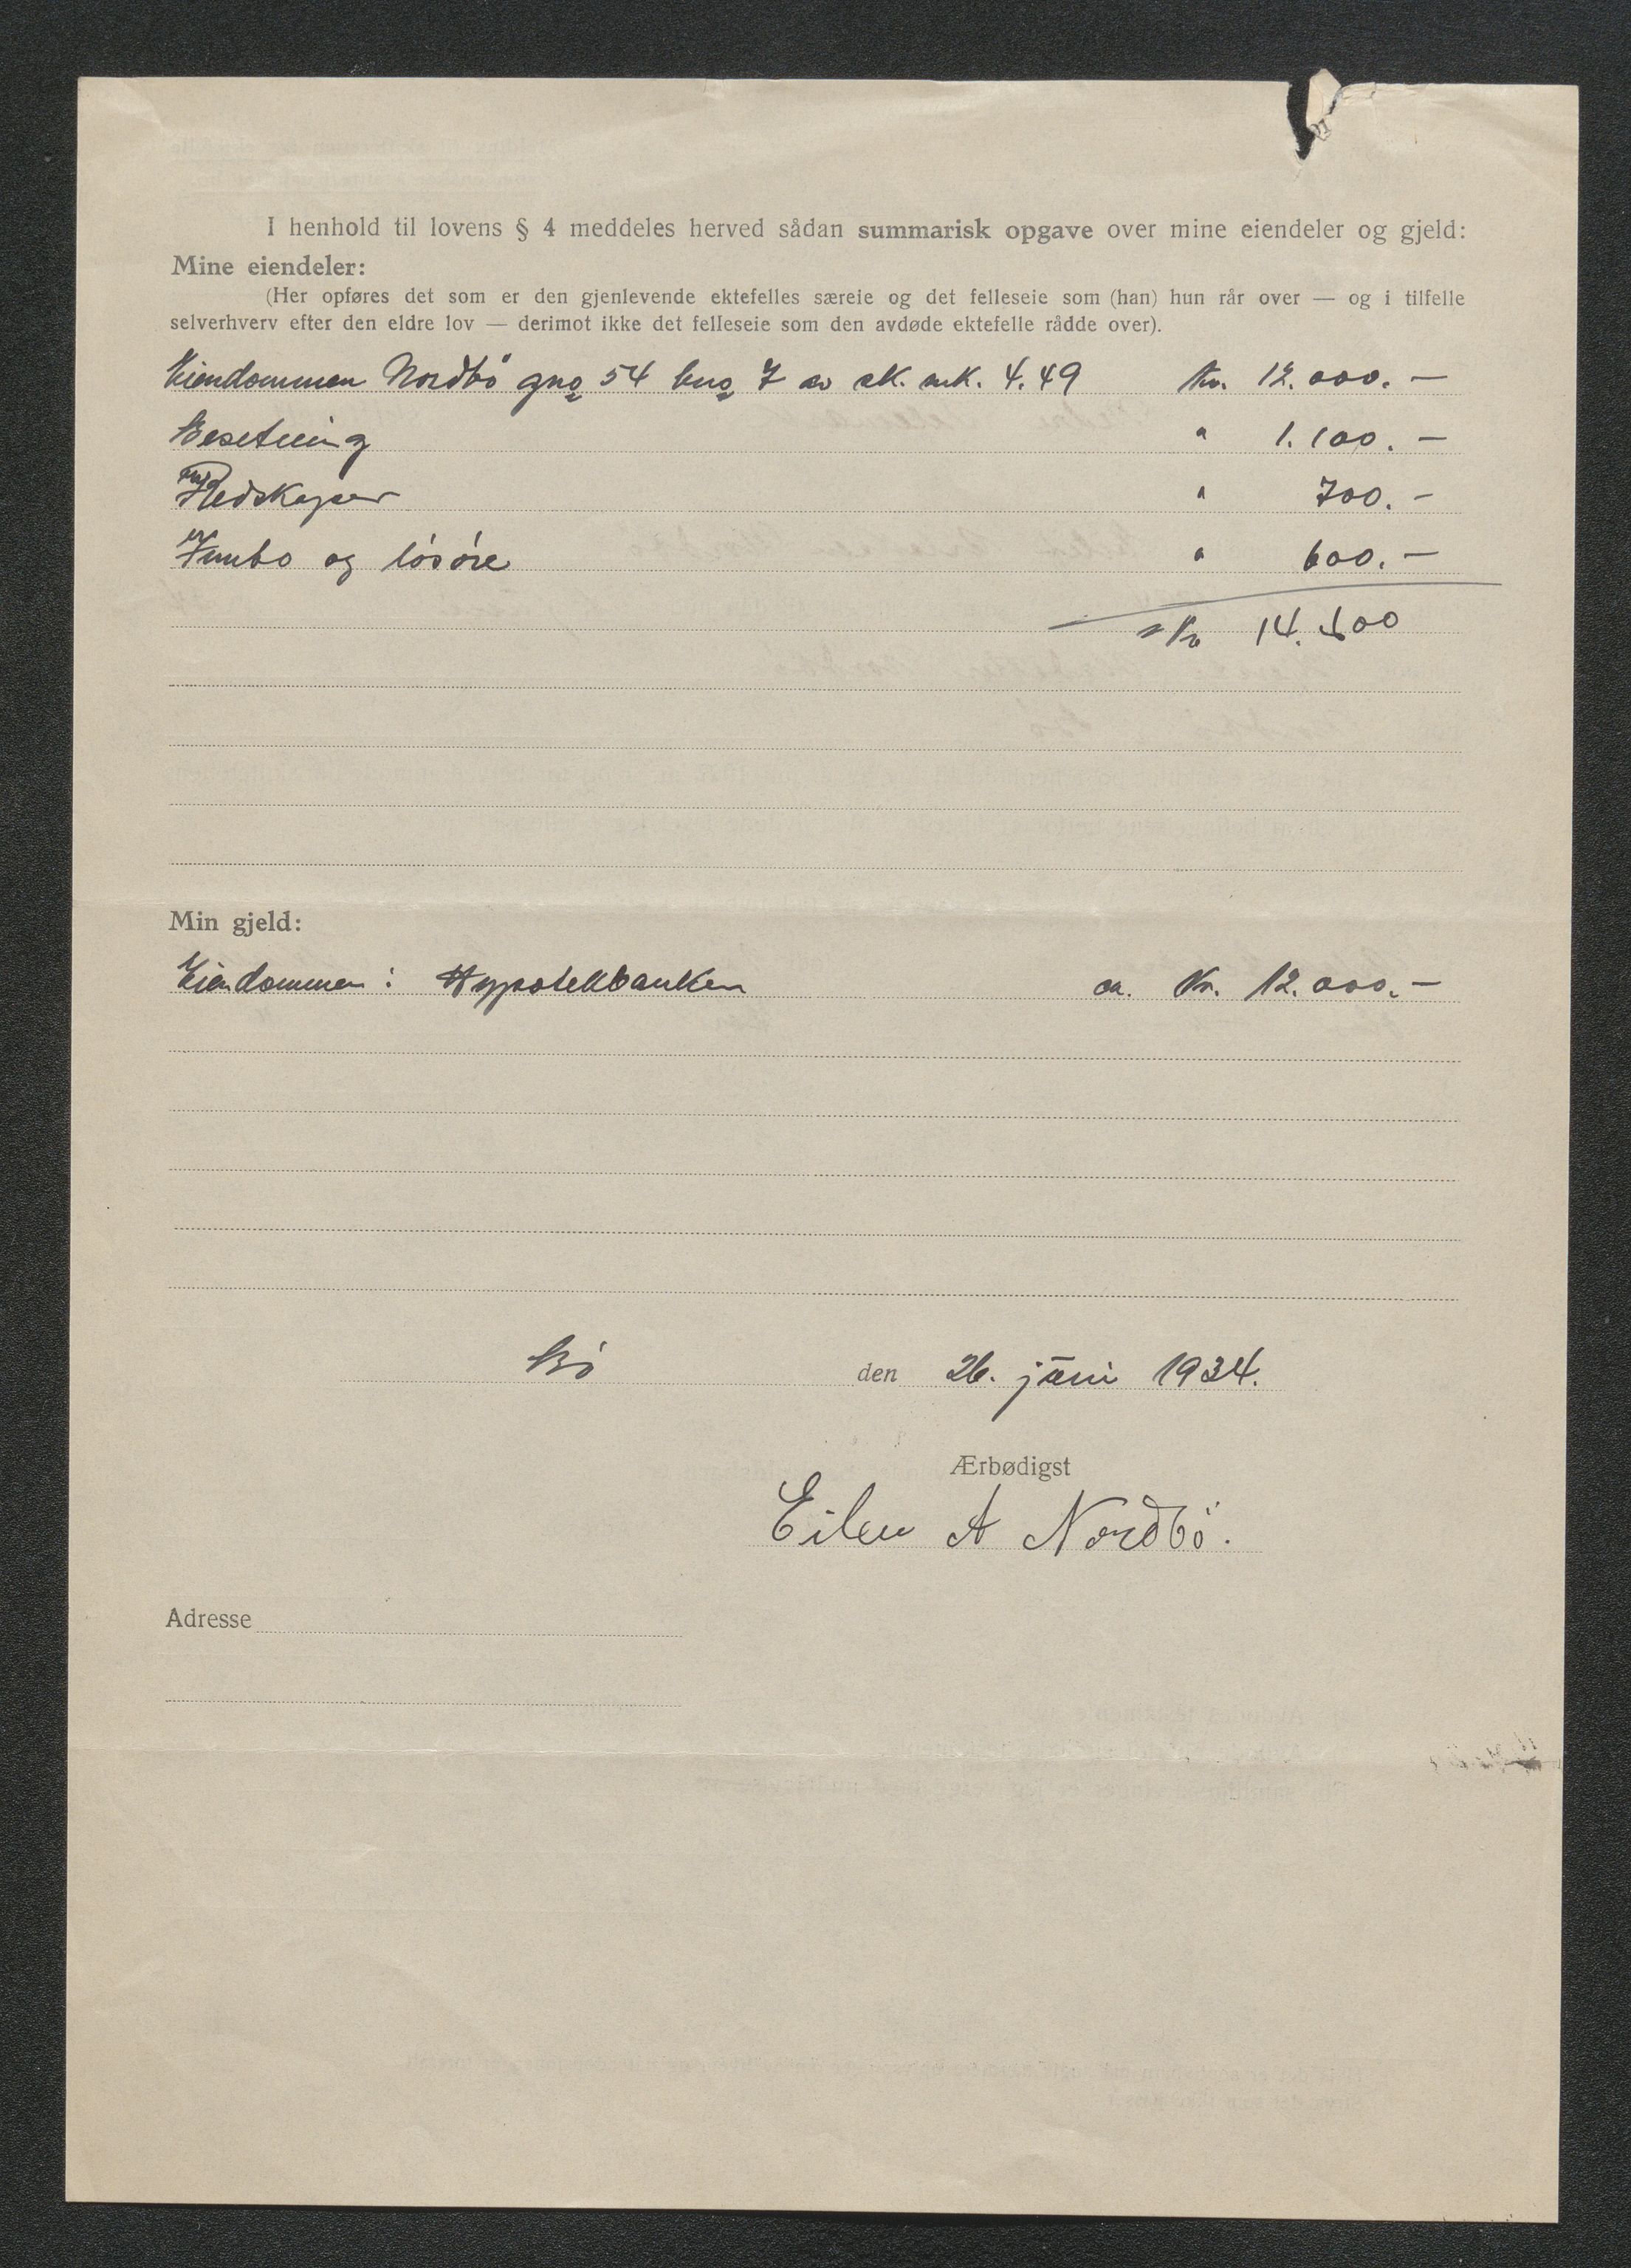 I henhold til lovens § 4 meddeles herved sådan summarisk opgave over mine eiendeler og gjeld:
Mine eiendeler:
(Her opføres det som er den gjenlevende ektefelles særeie og det felleseie som (han) hun rår over — og i tilfelle
selverhverv efter den eldre lov — derimot ikke det felleseie som den avdøde ektefelle rådde over).
Eiendommen Nordbö gno 54 bno 7 av sk. mk. 4.49 kr. 12.000.—
Besetning " 1.100.—
Redskaper " 700.—
Innbo og lösöre " 600.—
Kr 14.400
Min gjeld:
Eiendommen: Hypotekbanken ca. Kr. 12.000.—
Bö den 26. juni 1934.
Ærbødigst
A Nordbö.
Adresse